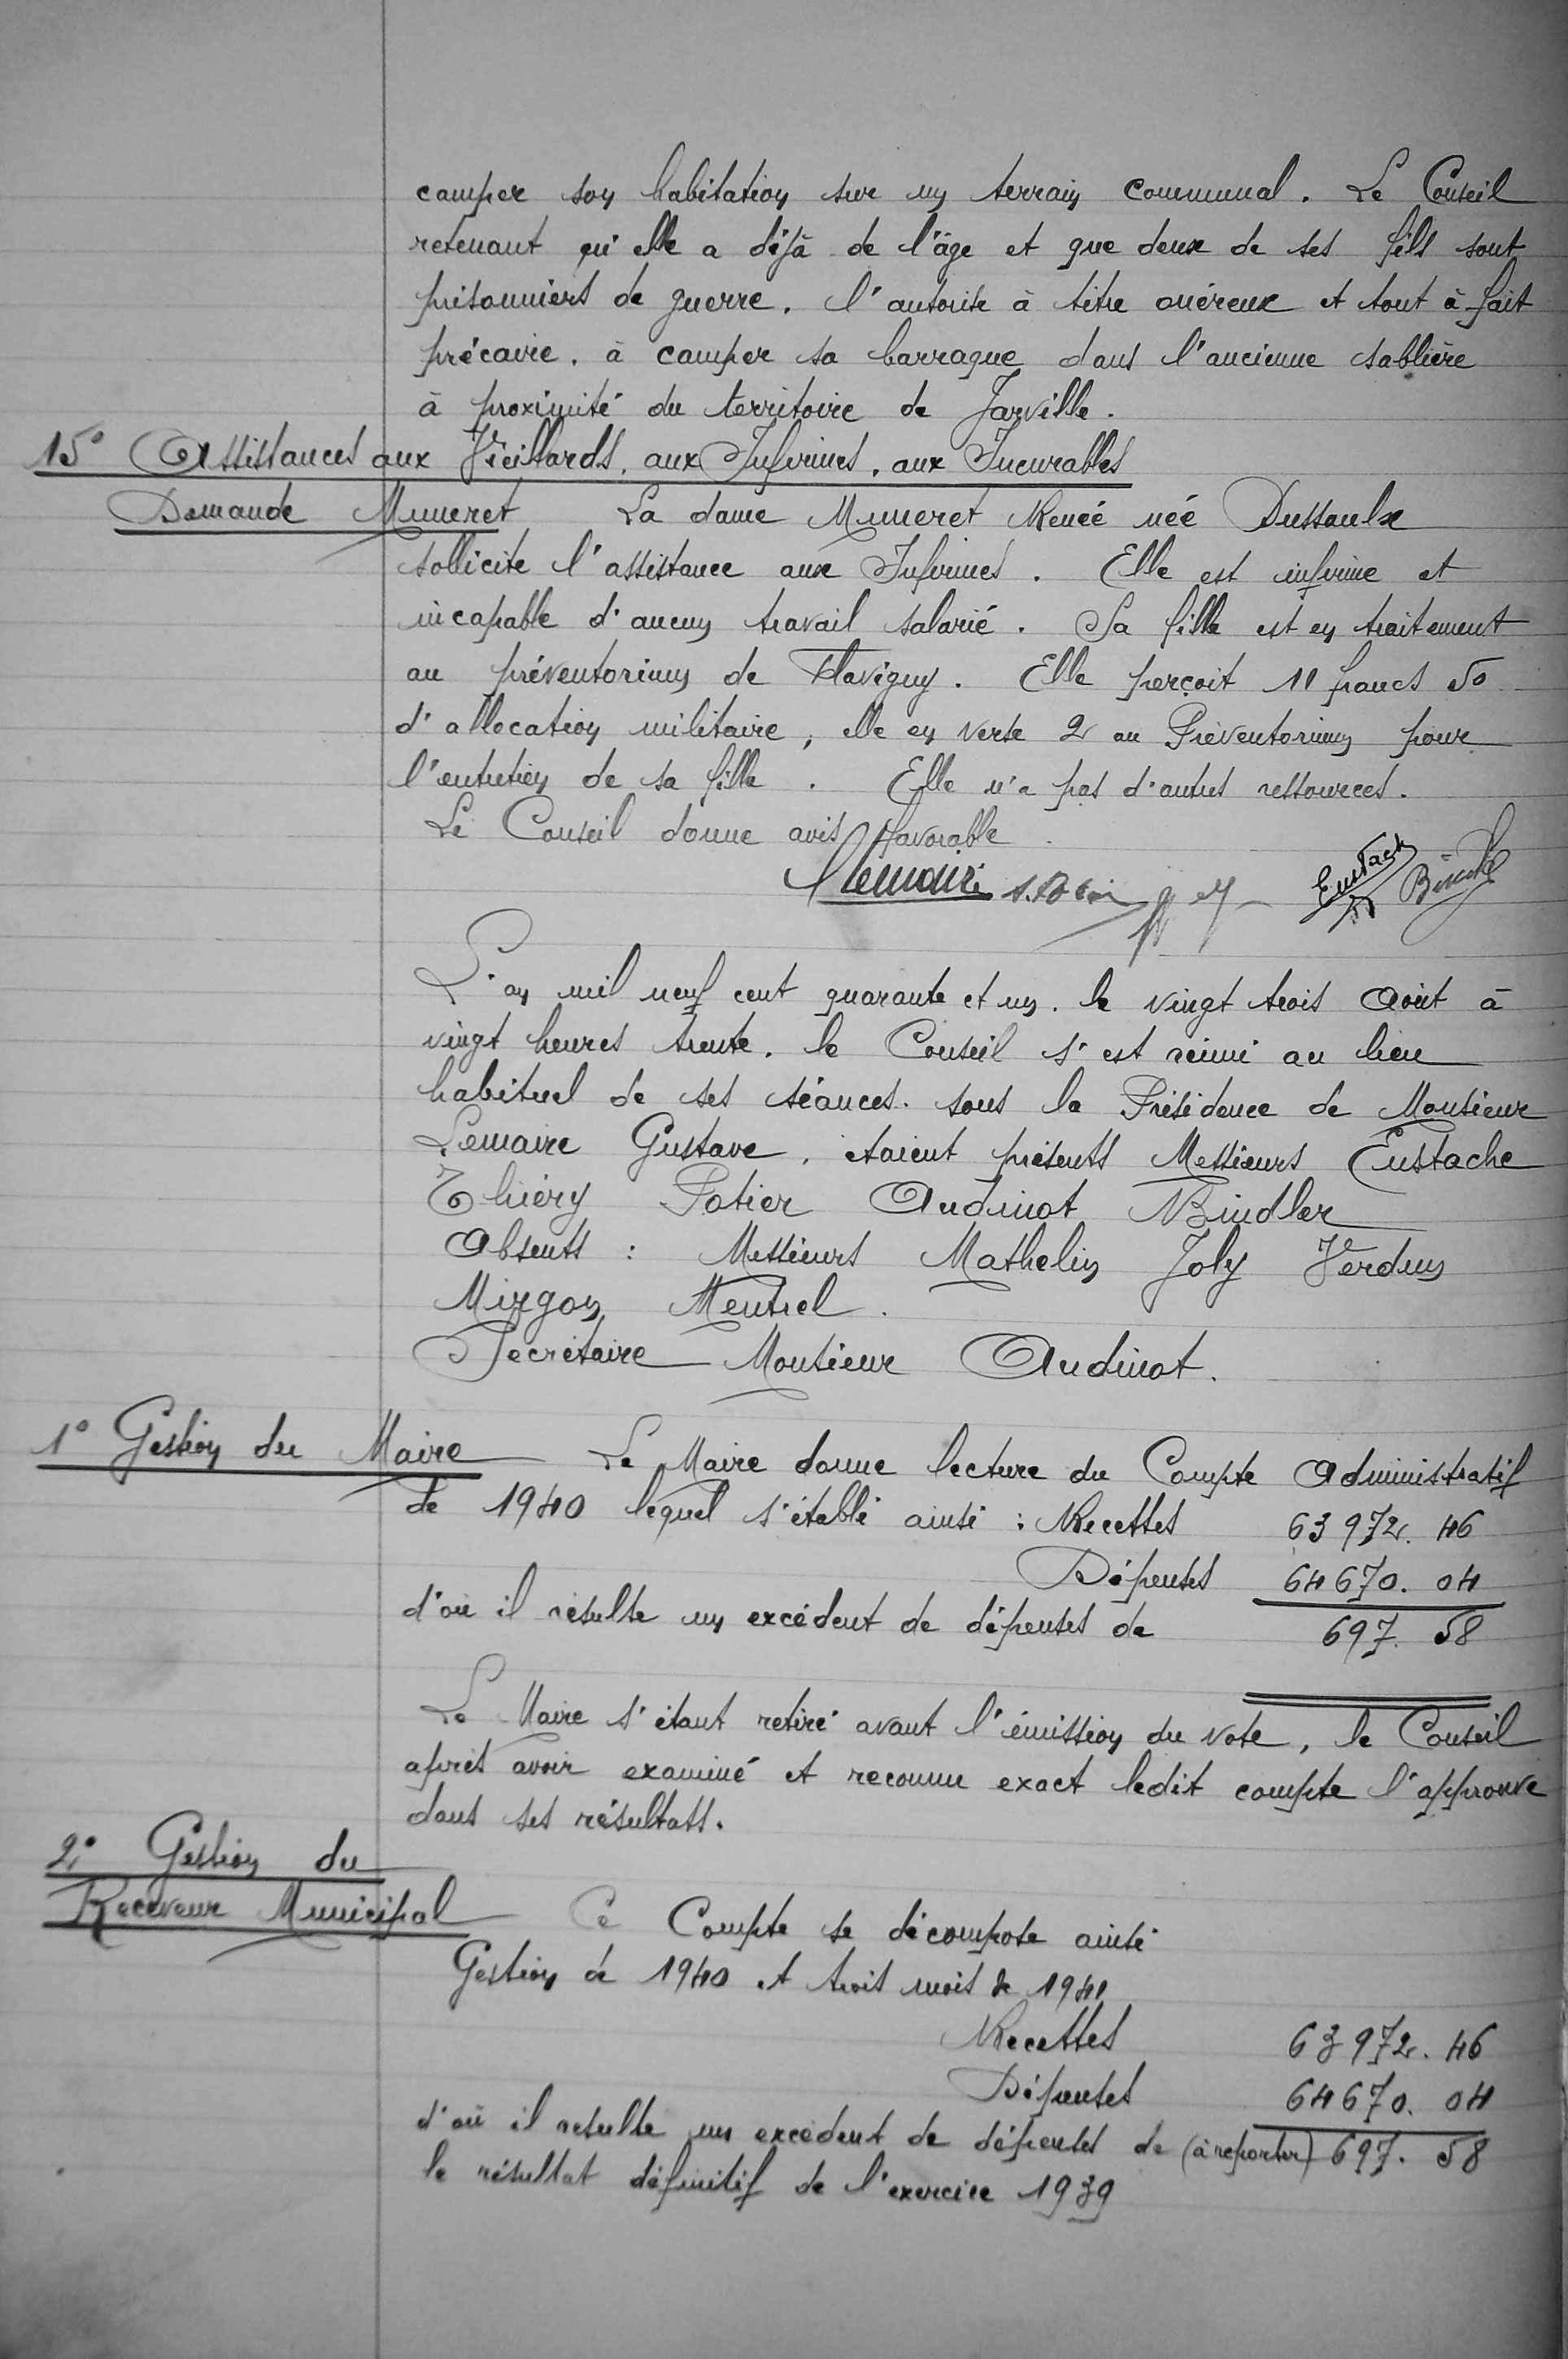 camper son habitation sur un terrain communal. Le Conseil
retenant qu'elle a déjà de l'âge et que deux de ses fils sont
prisonniers de guerre. l'autorise à titre onéreux et tout à fait
précaire. à camper sa barraque dans l'ancienne sablière
à proximité du territoire de Jarville.
15° Assistances aux Vieillards, aux Infirmes, aux Incurables
Demande Muneret La dame Muneret Renée née Dussaulx
sollicite l'assistance aux Infirmes. Elle est infirme et
incapable d'aucun travail salarié. Sa fille est en traitement
au préventorium de Flavigny. Elle perçoit 11 francs 50
d'allocation militaire, elle en verse 2 au Préventorium pour
l'entretien de sa fille. Elle n'a pas d'autres ressources.
Le Conseil donne avis favorable.
Lemaire Eustach
L'an mil neuf cent quarante et un. le vingt trois Août à
vingt heures trente. le Conseil s'est réuni au lieu
habituel de ses séances. sous la Présidence de Monsieur
Lemaire Gustave, étaient présents Messieurs Eustache
Thiéry Potier Audinot Bindler
Absents : Messieurs Mathelin Joly Verdun
Mirgon Mentrel.
Secrétaire Monsieur Audinot.
1° Gestion du Maire Le Maire donne lecture du Compte Administratif
de 1940 lequel s'établi ainsi : Recettes 63 972. 46
Dépenses 64 670. 04
d'où il résulte un excédent de dépenses de 697. 58
Le Maire s'étant retiré avant l'émission du vote, le Conseil
après avoir examiné et reconnu exact ledit compte l'approuve
dans ses résultats.
2° Gestion du
Receveur Municipal Ce Compte se décompose ainsi
Gestion de 1940 et trois mois de 1941
Recettes 63 972. 46
Dépenses 64 670. 04
d'où il résulte un excédent de dépenses de (à reporter) 697. 58
le résultat définitif de l'exercice 1939